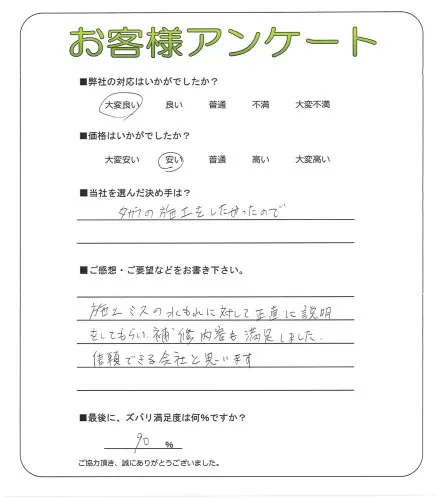 お客様アンケート
■弊社の対応はいかがでしたか?
大変良い 良い 普通 不満 大変不満
■価格はいかがでしたか?
大変安い 安い 普通 高い 大変高い
■当社を選んだ決め手は?
タカラの施工をしたかったので
■ご感想・ご要望などをお書き下さい。
施工ミスの水もれに対して正直に説明
をしてもらい、補修内容も満足しました。
信頼できる会社と思います
■最後に、ズバリ満足度は何%ですか?
90 %
ご協力頂き、誠にありがとうございました。